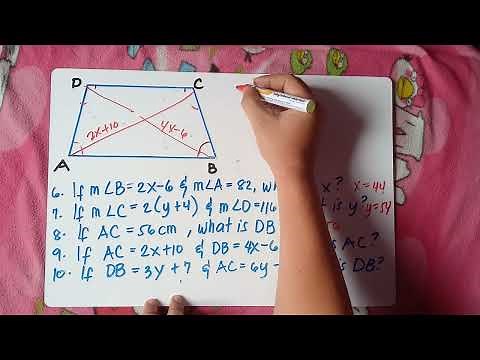 D C
2x+10 4x-6
A B
6. If m∠B = 2x-6 & m∠A = 82, x? x=44
7. If m∠C = 2(y+4) & m∠D=116 is y? y=54
8. If AC = 56cm, what is DB
9. If AC = 2x+10 & DB = 4x-6 AC?
10. If DB = 3y+7 & AC = 6y - is DB?